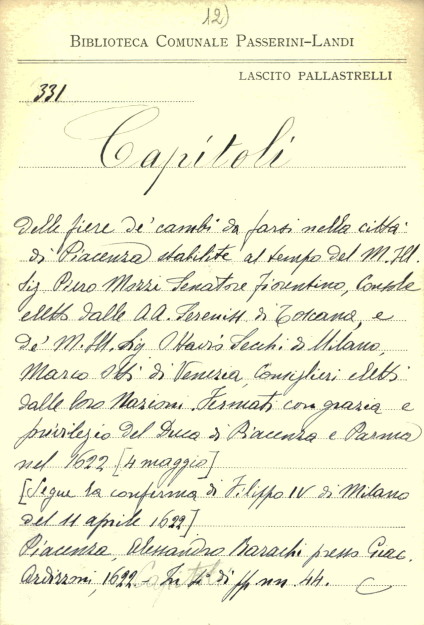 12)
BIBLIOTECA COMUNALE PASSERINI-LANDI
LASCITO PALLASTRELLI
331
Capitoli
Delle fiere de' cambi da farsi nella città
di Piacenza stabilite al tempo del M. Ill.
Sig Piero Mozzi Senatore fiorentino, Console
eletto dalle A.A. Sereniss di Toscana, e
de' M. Ill. Sig Ottavio Secchi di Milano,
Marco Otti di Venezia, Consiglieri eletti
dalle loro Nazioni. Fermati con grazia e
privilegio del Duca di Piacenza e Parma
nel 1622 [4 maggio]
[Segue la conferma di Filippo IV di Milano
del 11 aprile 1622]
Piacenza, Alessandro Barachi presso Giac.
Ardizzoni, 1622 - In 4° di pp nn. 44.